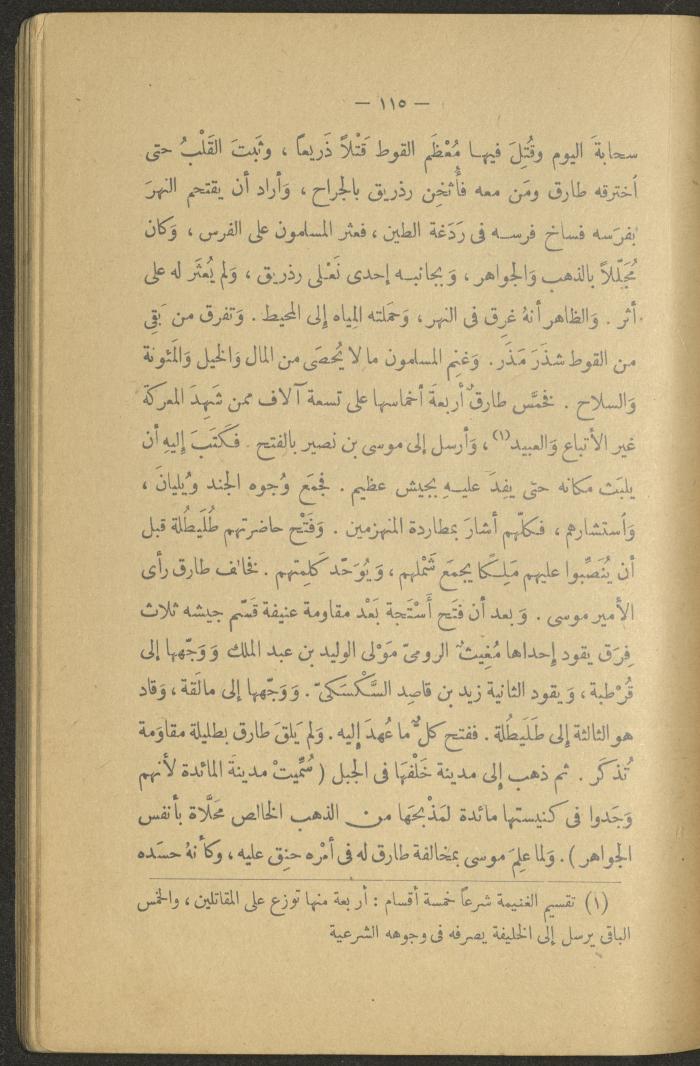 — ١١٥ —
سحابةَ اليوم وقُتِلَ فيها مُعْظَم القوط قَتْلاً ذَريعاً ، وثَبتَ القَلْبُ حتى
اخترقه طارق ومَن معه فأُثخِن رذريق بالجراح ، وَأراد أن يقتحم النهرَ
بفرَسه فساخ فرســه فى رَدَغة الطين ، فعثر المسلمون على الفرس ، وَكان
مُجَلّلاً بالذهب وَالجواهر ، وَبجانبــه إحدى نَعْلى رذريق ، وَلم يُعثَر له على
أثر . وَالظاهر أنهُ غرِق فى النهر ، وَحمَلته المِياه إلى المحيط . وَتفرق من بَقِى
من القوط شذَرَ مَذَر . وَغنِم المسلمون ما لا يُحصَى من المال وَالخيل وَالمَئونة
وَالسلاح . فخمَّس طارقٌ أربعةَ أخماسها على تسعة آلاف ممن شَهِدَ المعركة
غير الأتباع وَالعبيد(١) ، وَأرسل إلى موسى بن نصير بالفتح . فكَتَبَ إليه أن
يلبَث مكانه حتى يفِدَ عليــهِ بجيش عظيم . فجمَع وُجوه الجند وَيُليانَ ،
وَاستشارهم ، فكلّهم أشارَ بمطاردة المنهزمين . وَفَتْح حاضرتهم طُلَيطُلة قبل
أن يُنَصِّبوا عليهم مَلِكًا يجمَع شَمْلهم ، وَيُوَحّد كَلِمتهم . فخالف طارق رأى
الأمير موسى . وَبعد أن فتَح أَسْتَجة بَعْد مقاومة عنيفة قَسّم جيشه ثلاث
فِرَق يقود إحداها مُغِيثٌ الرومىّ مَوْلى الوليد بن عبد الملك وَوَجّهها إلى
قُرْطبة ، وَيقود الثانية زيد بن قاصِد السَّكْسَكىّ . وَوَجّهها إلى مالَقة ، وَقاد
هو الثالثة إلى طَلَيطُلة . ففتح كلٌّ ما عُهدَ إليه . وَلم يَلقَ طارق بطليلة مقاوَمة
تُذكَر . ثم ذهب إلى مدينة خَلْفَها فى الجبل ( سُمِّيتْ مدينةَ المائدة لأنهم
وَجَدوا فى كنيستها مائدة لمَذْبحَها مــن الذهب الخالص مُحَلَّاة بأنفس
الجواهر ) . وَلما علِمَ موسى بمخالفة طارق له فى أمْره حنِق عليه ، وَكأنهُ حسَده
(١) تقسيم الغنيمة شرعاً خمسة أقسام : أربعة منها توزع على المقاتلين ، والخمس
الباقى يرسل إلى الخليفة يصرفه فى وجوهه الشرعية